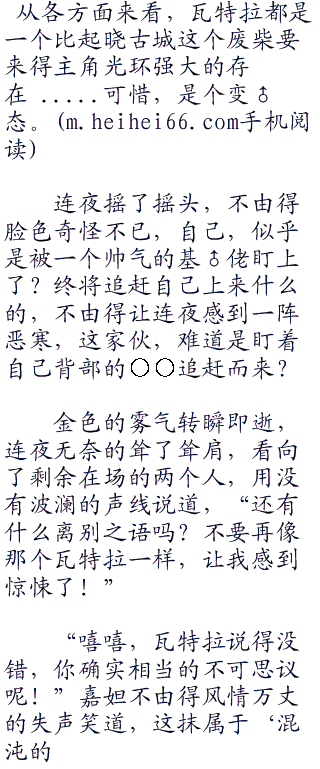 从各方面来看，瓦特拉都是
一个比起晓古城这个废柴要
来得主角光环强大的存
在 .....可惜，是个变♂
态。(m.heihei66.com手机阅
读)
连夜摇了摇头，不由得
脸色奇怪不已，自己，似乎
是被一个帅气的基♂佬盯上
了？终将追赶自己上来什么
的，不由得让连夜感到一阵
恶寒，这家伙，难道是盯着
自己背部的○○追赶而来？
金色的雾气转瞬即逝，
连夜无奈的耸了耸肩，看向
了剩余在场的两个人，用没
有波澜的声线说道，“还有
什么离别之语吗？不要再像
那个瓦特拉一样，让我感到
惊悚了！”
“嘻嘻，瓦特拉说得没
错，你确实相当的不可思议
呢！”嘉妲不由得风情万丈
的失声笑道，这抹属于‘混
沌的